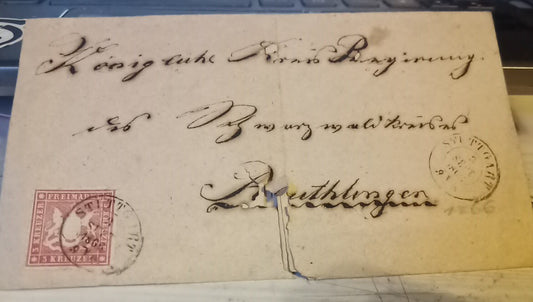 Königliche Kreis Regierung
des Schwarzwaldkreises
Reuthlingen
STUTTGART
1866
FREIMARKE
3 KREUZER
STUTTGART